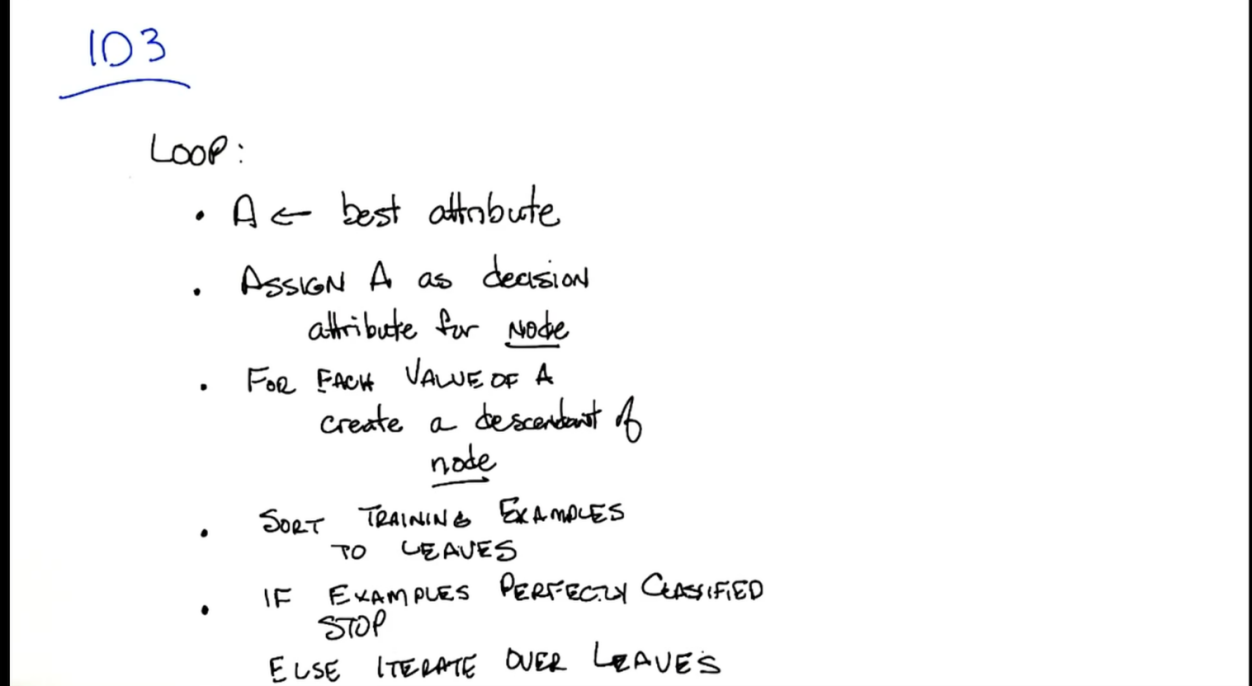 ID3
LOOP:
• A ← best attribute
• ASSIGN A as decision
attribute for NODE
• FOR EACH VALUE OF A
create a descendant of
node
• SORT TRAINING EXAMPLES
TO LEAVES
• IF EXAMPLES PERFECTLY CLASSIFIED
STOP
ELSE ITERATE OVER LEAVES